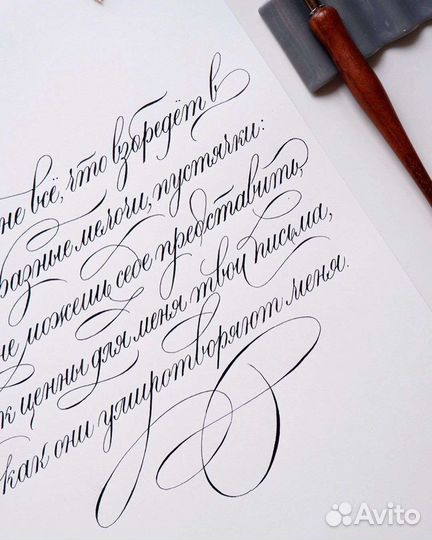 не всё, что взбредёт в
разные мелочи, пустячки:
не можешь себе представить,
к ценны для меня твои письма,
как они умиротворяют меня.
Avito